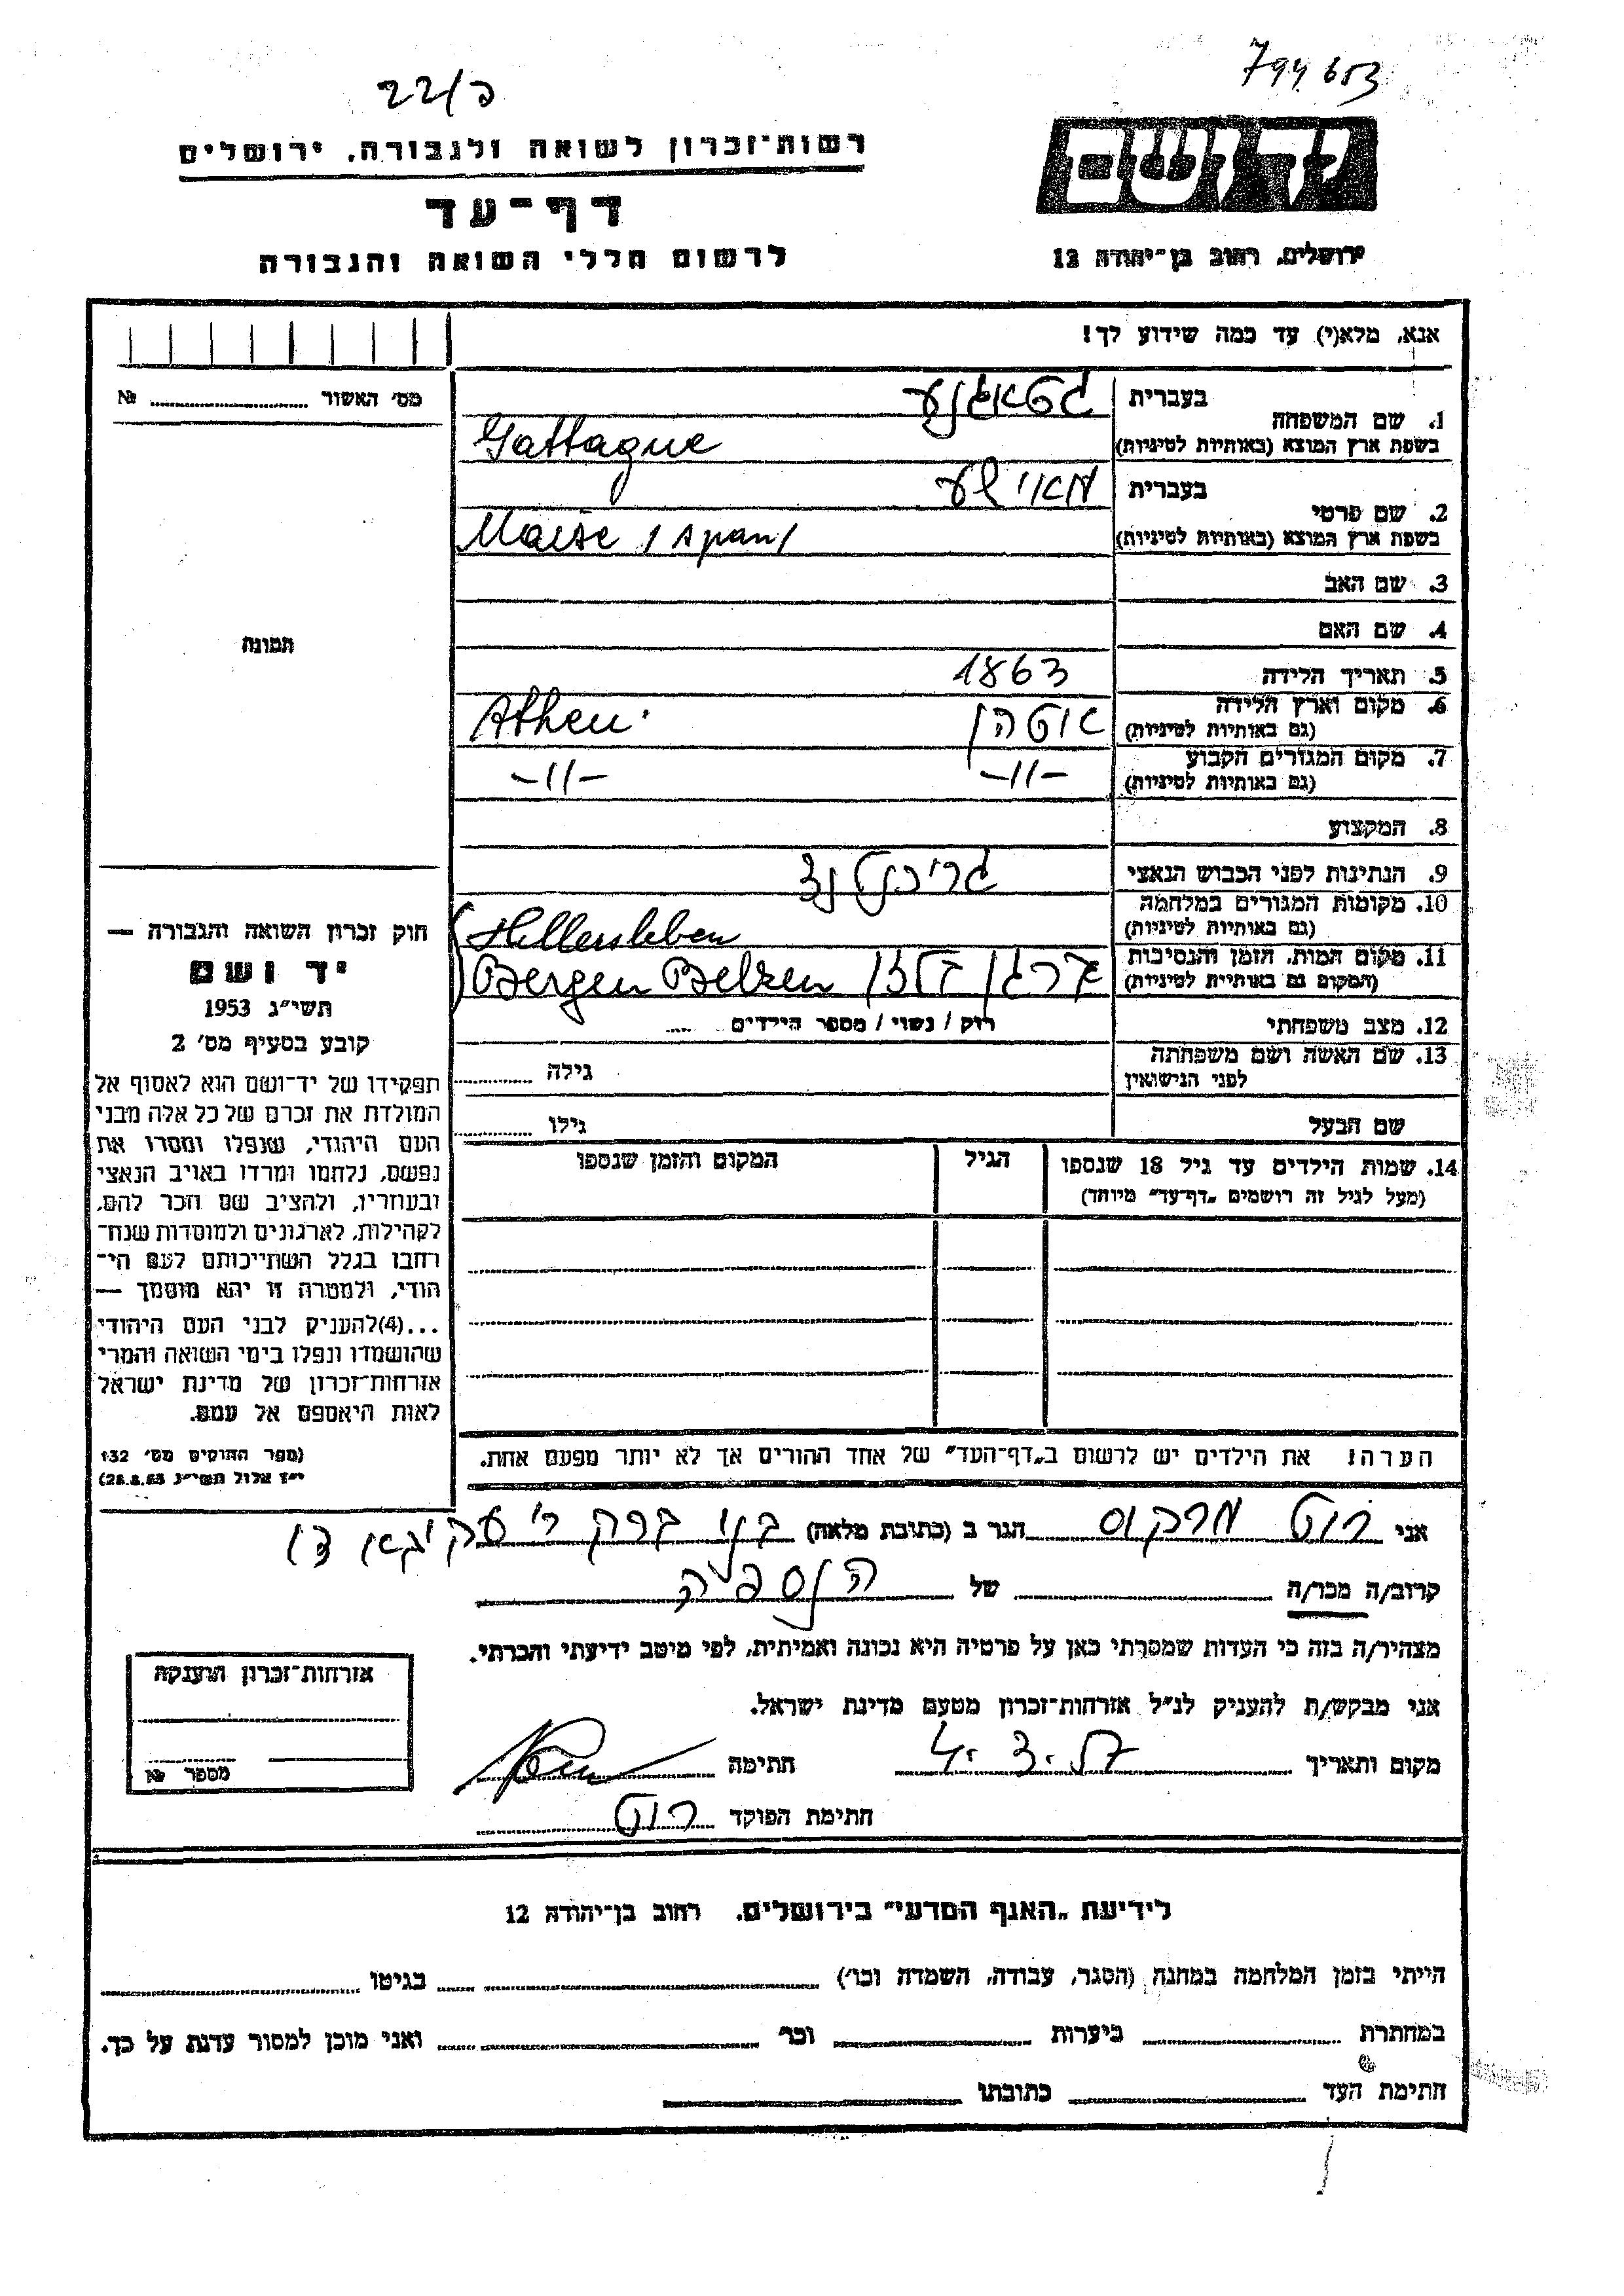 794653
22/כ
יד ושם
רשות־זכרון לשואה ולגבורה, ירושלים
דף־עד
לרשום חללי השואה והגבורה
ירושלים, רחוב בן־יהודה 12
אנא, מלא(י) עד כמה שידוע לך!
מס׳ האשור № 
1. שם המשפחה
בעברית גטאגנע
בשפת ארץ המוצא (באותיות לטיניות) Gattague
2. שם פרטי
בעברית מאישע
בשפת ארץ המוצא (באותיות לטיניות) Maise / span /
3. שם האב
4. שם האם
תמונה
5. תאריך הלידה 1863
6. מקום וארץ הלידה אטהן Athen.
(גם באותיות לטיניות)
7. מקום המגורים הקבוע -"- -"-
(גם באותיות לטיניות)
8. המקצוע
9. הנתינות לפני הכבוש הנאצי
10. מקומות המגורים במלחמה Hillersleben
(גם באותיות לטיניות)
11. מקום המות, הזמן והנסיבות ברגן בלזן Bergen Belzen
(המקום גם באותיות לטיניות)
12. מצב משפחתי רוק / נשוי / מספר הילדים
13. שם האשה ושם משפחתה גילה
לפני הנישואין
שם הבעל גילו
14. שמות הילדים עד גיל 18 שנספו הגיל המקום והזמן שנספו
(מעל לגיל זה רושמים „דף־עד״ מיוחד)
חוק זכרון השואה והגבורה —
יד ושם
תשי״ג 1953
קובע בסעיף מס׳ 2
תפקידו של יד־ושם הוא לאסוף אל
המולדת את זכרם של כל אלה מבני
העם היהודי, שנפלו ומסרו את
נפשם, נלחמו ומרדו באויב הנאצי
ובעוזריו, ולהציב שם וזכר להם,
לקהילות, לארגונים ולמוסדות שנח־
רבו בגלל השתייכותם לעם הי־
הודי, ולמטרה זו יהא מוסמך —
...(4)להעניק לבני העם היהודי
שהושמדו ונפלו בימי השואה והמרי
אזרחות־זכרון של מדינת ישראל
לאות היאספם אל עמם.
(ספר החוקים מס׳ 132
י״ז אלול תשי״ג 28.8.53)
הערה! את הילדים יש לרשום ב„דף־העד״ של אחד ההורים אך לא יותר מפעם אחת.
אני רוט מרקוס הגר ב (כתובת מלאה) בני ברק ר׳ עקיבא
קרוב/ה מכר/ה של הנספה
מצהיר/ה בזה כי העדות שמסרתי כאן על פרטיה היא נכונה ואמיתית, לפי מיטב ידיעתי והכרתי.
אני מבקש/ת להעניק לנ״ל אזרחות־זכרון מטעם מדינת ישראל.
מקום ותאריך 4.3.57 חתימה
חתימת הפוקד רוט
אזרחות־זכרון הוענקה
מספר №
לידיעת „האגף המדעי״ בירושלים, רחוב בן־יהודה 12
הייתי בזמן המלחמה במחנה (הסגר, עבודה, השמדה וכו׳) בגיטו
במחתרת ביערות וכו׳ ואני מוכן למסור עדות על כך.
חתימת העד כתובתו